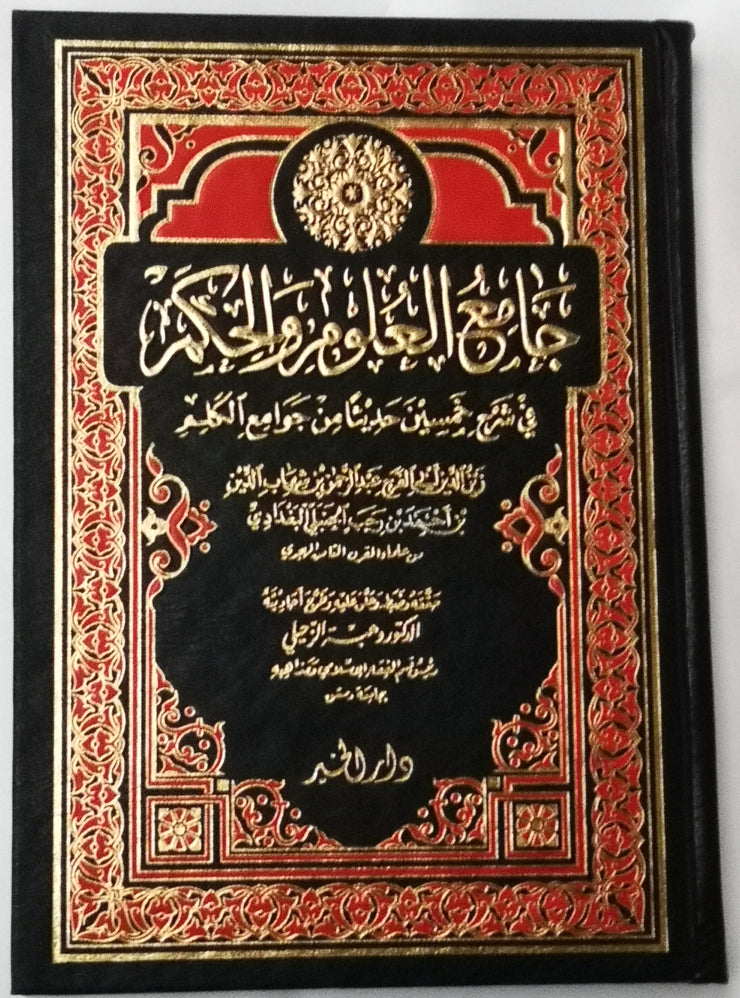 جَامِعُ العُلُومِ وَالحِكَمِ
في شَرح خَمسِين حَديثًا مِن جَوامِع الكَلِم
زين الدّين أبي الفرج عبد الرحمن بن شهاب الدّين
بن أحمد بن رجب الحنبلي البغدادي
من علماء القرن الثامن الهجري
حققه وضبطه وعلق عليه وخرج أحاديثه
الدكتور وهبة الزحيلي
رئيس قسم الفقه الإسلامي ومذاهبه
بجامعة دمشق
دار الخير